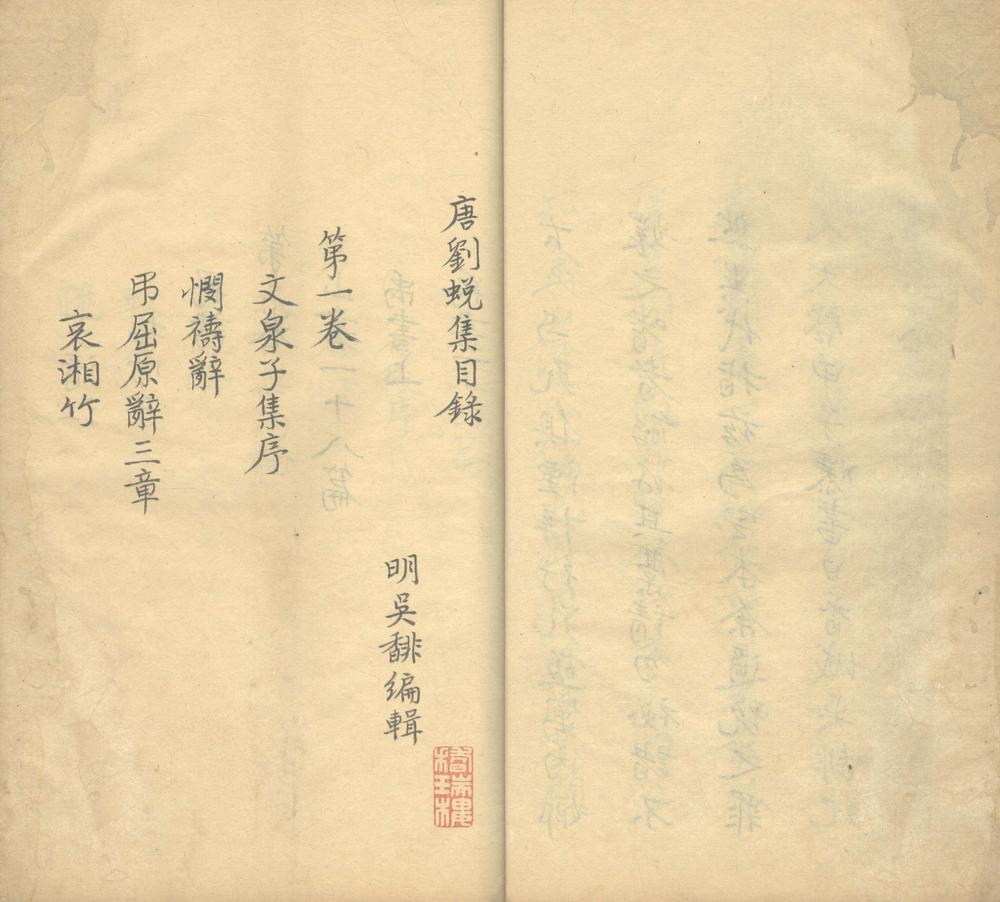 唐劉蛻集目錄
明吳馡編輯
第一卷
文泉子集序
憫禱辭
弔屈原辭三章
哀湘竹